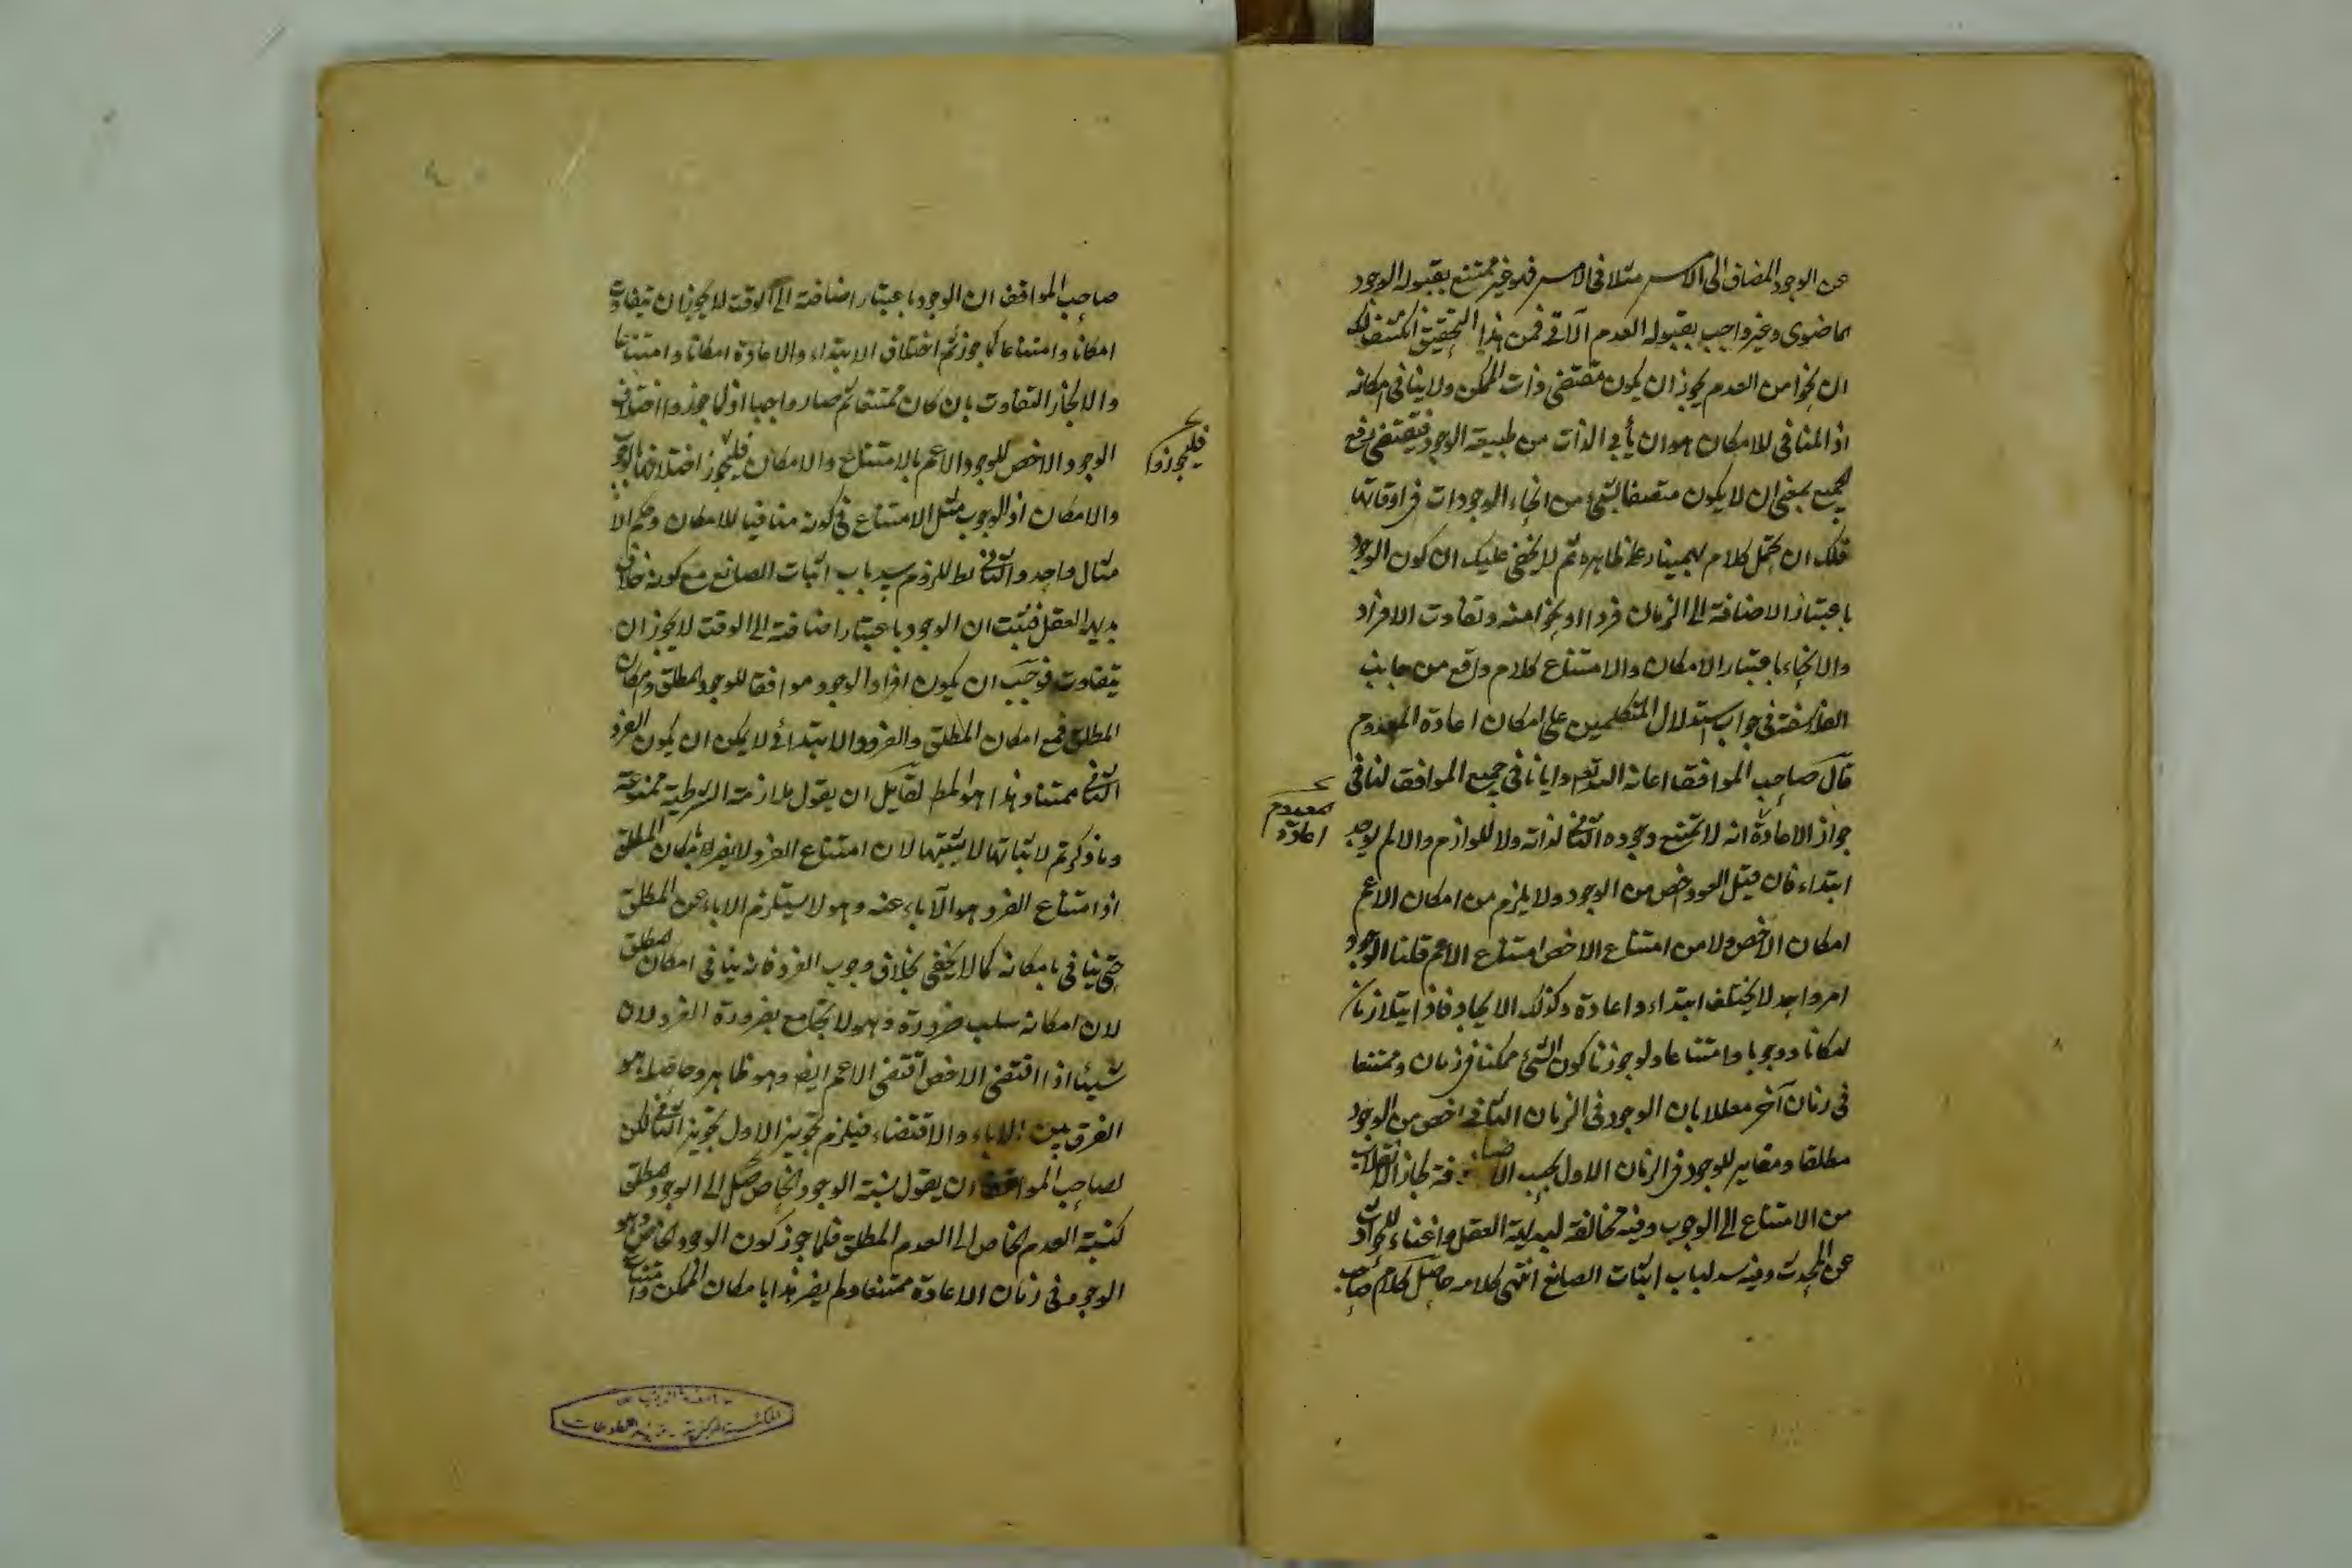 عن الوجود المضاف الى الامس مثلا فى الامس فلو غير ممتنع بقبوله الوجود
ماضوى وغير واجب بقبوله العدم الآتى فمن هذا التحقيق انكشف لك
ان نحوا من العدم يجوز ان يكون مقتضى ذات الممكن ولا ينافى امكانه
اذ المنافى للامكان هو ان يأبى الذات من طبيعة الوجود فيقتضى رفع
الجميع بمعنى ان لا يكون متصفا بشئ من انحاء الوجودات فى اوقاتها
فلك ان تحمل كلام بهمنيار على ظاهره ثم لا يخفى عليك ان كون الوجود
باعتبار الاضافة الى الزمان فردا او نحوا منه وتفاوت الافراد
والانحاء باعتبار الامكان والامتناع كلام واقع من جانب
الفلاسفة فى جواب استدلال المتكلمين على امكان اعادة المعدوم
قال صاحب المواقف اعانه الله تعالى وايانا فى جميع المواقف لنا فى
جواز الاعادة انه لا يمتنع وجوده الثانى لذاته ولا للوازمه والا لم يوجد
معدوم
اعادة
ابتداء فان قيل العود اخص من الوجود ولا يلزم من امكان الاعم
امكان الاخص ولا من امتناع الاخص امتناع الاعم قلنا الوجود
امر واحد لا يختلف ابتداء واعادة وكذلك الايجاد فاذا يتلازمان
امكانا ووجوبا وامتناعا ولو جوزنا كون الشئ ممكنا فى زمان وممتنعا
فى زمان آخر معللا بان الوجود فى الزمان الثانى اخص من الوجود
مطلقا ومغاير للوجود فى الزمان الاول بحسب الاضافة لجاز الانقلاب
من الامتناع الى الوجوب وفيه مخالفة لبديهة العقل واغناء للحوادث
عن المحدث وفيه سد لباب اثبات الصانع انتهى كلامه حاصل كلام صاحب
صاحب المواقف ان الوجود باعتبار اضافته الى الوقت لا يجوز ان يتفاوت
امكانا وامتناعا كما جوزتم اختلاف الابتداء والاعادة امكانا وامتناعا
والا لجاز التفاوت بان كان ممتنعا ثم صار واجبا اذ لما جوزوا اختلاف
الوجود الاخص للوجود الاعم بالامتناع والامكان فليجوز اختلافهما بالوجوب
فليجوزوا
والامكان اذ الوجوب مثل الامتناع فى كونه منافيا للامكان وحكم الا
مثال واحد والثانى بط للزوم سد باب اثبات الصانع مع كونه خلاف
بديهة العقل فثبت ان الوجود باعتبار اضافته الى الوقت لا يجوز ان
يتفاوت فوجب ان يكون افراد الوجود موافقا للوجود المطلق وامكان
المطلق فمع امكان المطلق والفرد الابتدائى لا يمكن ان يكون الفرد
الثانى ممتنعا وهذا هو المط لقايل ان يقول ملازمة الشرطية ممنوعة
وما ذكرتم لاثباتها لا يثبتها لان امتناع الفرد لا يضر بامكان المطلق
اذ امتناع الفرد هو الاباء عنه وهو لا يستلزم الاباء عن المطلق
حتى ينافى بامكانه كما لا يخفى بخلاف وجوب الفرد فانه ينافى امكان المطلق
لان امكانه سلب ضرورة وهو لا يجامع بضرورة الفرد لان
شيئا اذا اقتضى الاخص اقتضى الاعم ايضا وهو ظاهر وحاصله هو
الفرق بين الاباء والاقتضاء فيلزم تجويز الاول تجويز الثانى لكن
لصاحب المواقف ان يقول نسبة الوجود الخاص الى الوجود المطلق
كنسبة العدم الخاص الى العدم المطلق فلما جوز كون الوجود الخاص وهو
الوجود فى زمان الاعادة ممتنعا ولم يضر هذا بامكان الممكن وامتناع